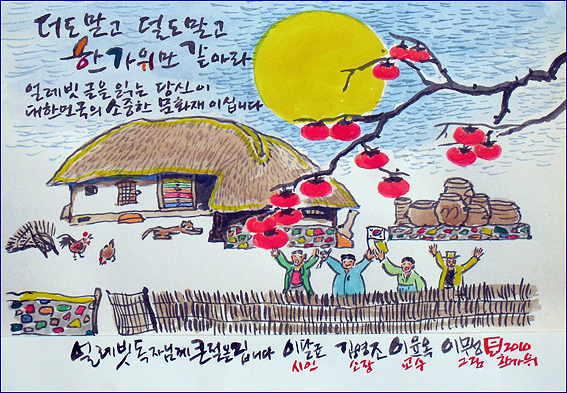 더도말고 덜도말고
한가위만 같아라
얼레빗 글을 읽는 당신이
대한민국의 소중한 문화재이십니다
얼레빗 독자님께 큰절올립니다 김영조 이윤옥 이무성 2010
시인 소장 교수 그림 한가위